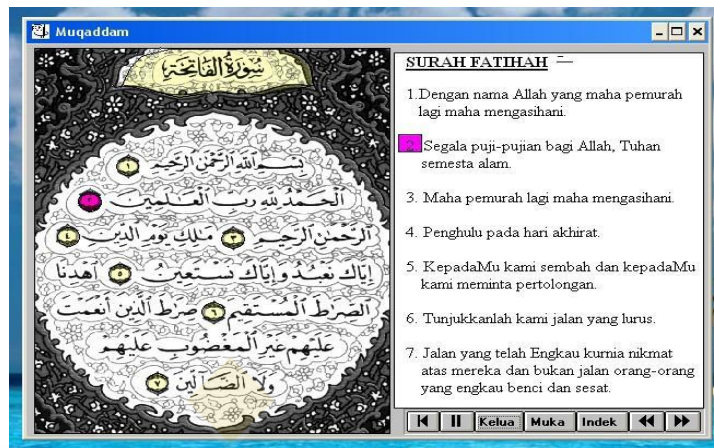 Muqaddam
سُورَةُ الْفَاتِحَة
بِسْمِ اللَّهِ الرَّحْمَٰنِ الرَّحِيمِ ١
الْحَمْدُ لِلَّهِ رَبِّ الْعَالَمِينَ ٢
الرَّحْمَٰنِ الرَّحِيمِ ٣ مَالِكِ يَوْمِ الدِّينِ ٤
إِيَّاكَ نَعْبُدُ وَإِيَّاكَ نَسْتَعِينُ ٥ اهْدِنَا
الصِّرَاطَ الْمُسْتَقِيمَ ٦ صِرَاطَ الَّذِينَ أَنْعَمْتَ
عَلَيْهِمْ غَيْرِ الْمَغْضُوبِ عَلَيْهِمْ
وَلَا الضَّالِّينَ ٧
SURAH FATIHAH
1.Dengan nama Allah yang maha pemurah
lagi maha mengasihani.
2. Segala puji-pujian bagi Allah, Tuhan
semesta alam.
3. Maha pemurah lagi maha mengasihani.
4. Penghulu pada hari akhirat.
5. KepadaMu kami sembah dan kepadaMu
kami meminta pertolongan.
6. Tunjukkanlah kami jalan yang lurus.
7. Jalan yang telah Engkau kurnia nikmat
atas mereka dan bukan jalan orang-orang
yang engkau benci dan sesat.
Kelua Muka Indek